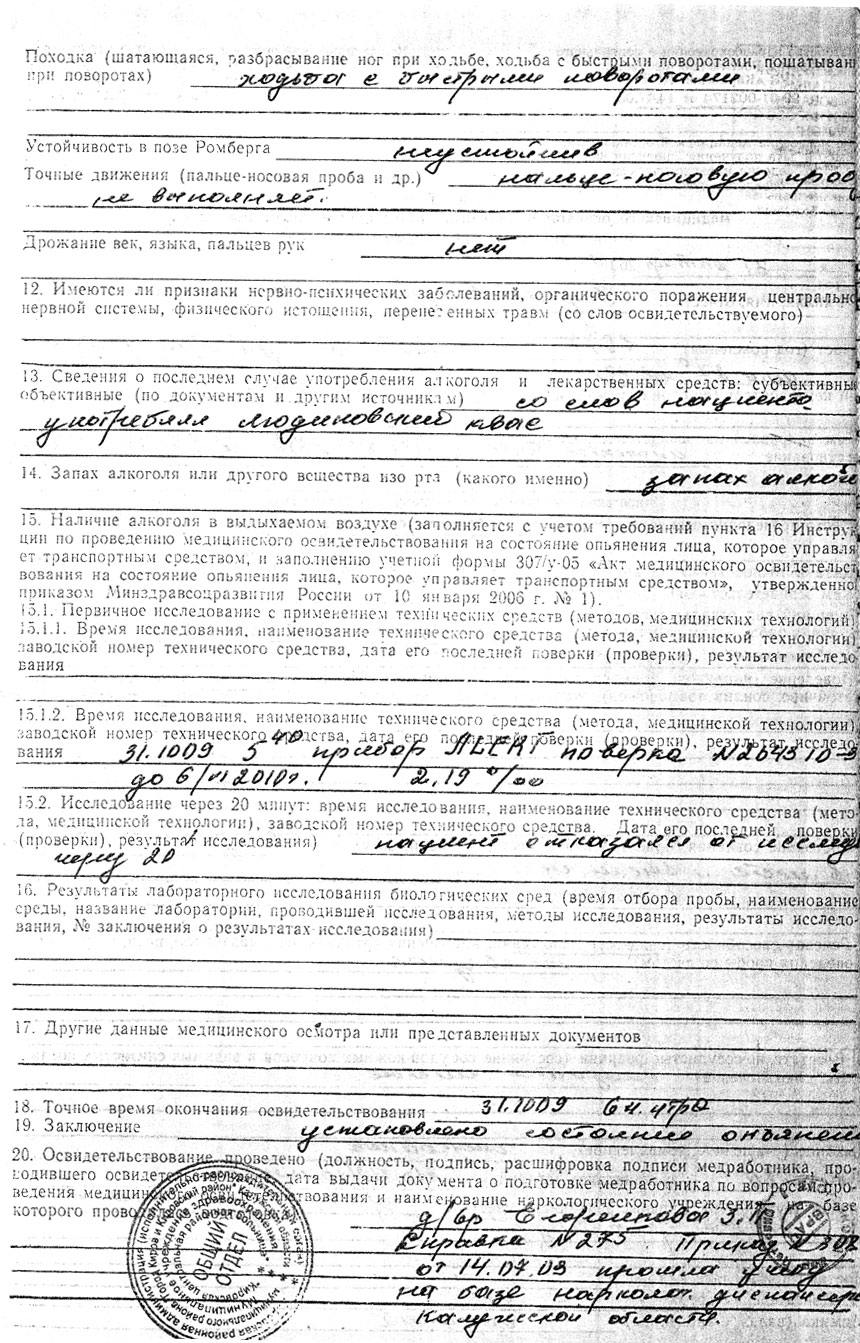 Походка (шатающаяся, разбрасывание ног при ходьбе, ходьба с быстрыми поворотами, пошатыван
при поворотах) ходьба с быстрыми поворотами
Устойчивость в позе Ромберга неустойчив
Точные движения (пальце-носовая проба и др.) пальце-носовую проб
не выполняет.
Дрожание век, языка, пальцев рук нет
12. Имеются ли признаки нервно-психических заболеваний, органического поражения центрально
нервной системы, физического истощения, перенесенных травм (со слов освидетельствуемого)
13. Сведения о последнем случае употребления алкоголя и лекарственных средств: субъективны
объективные (по документам и другим источникам) со слов пациента
употреблял людиновский квас
14. Запах алкоголя или другого вещества изо рта (какого именно) запах алкого
15. Наличие алкоголя в выдыхаемом воздухе (заполняется с учетом требований пункта 16 Инструк
ции по проведению медицинского освидетельствования на состояние опьянения лица, которое управля
ет транспортным средством, и заполнению учетной формы 307/у-05 «Акт медицинского освидетельст
вования на состояние опьянения лица, которое управляет транспортным средством», утвержденно
приказом Минздравсоцразвития России от 10 января 2006 г. № 1).
15.1. Первичное исследование с применением технических средств (методов, медицинских технологий)
15.1.1. Время исследования, наименование технического средства (метода, медицинской технологии)
заводской номер технического средства, дата его последней поверки (проверки), результат исследо-
вания
15.1.2. Время исследования, наименование технического средства (метода, медицинской технологии)
заводской номер технического средства, дата его последней поверки (проверки), результат исследо-
вания 31.1009 5 40 прибор ALERT поверка
до 6/VI 2010г. 2,19 ‰
15.2. Исследование через 20 минут: время исследования, наименование технического средства (мето-
да, медицинской технологии), заводской номер технического средства. Дата его последней поверки
(проверки), результат исследования) пациент отказался от исслед
через 20
16. Результаты лабораторного исследования биологических сред (время отбора пробы, наименование
среды, название лаборатории, проводившей исследования, методы исследования, результаты исследо-
вания, № заключения о результатах исследования)
17. Другие данные медицинского осмотра или представленных документов
18. Точное время окончания освидетельствования 31.1009 6 ч. утра
19. Заключение установлено состояние опьянен
20. Освидетельствование проведено (должность, подпись, расшифровка подписи медработника, про-
водившего освидетельствование, дата выдачи документа о подготовке медработника по вопросам про-
ведения медицинского освидетельствования и наименование наркологического учреждения, на базе
которого
д/вр
Справка N 275 Приказ
от 14.07.03 прошла учебу
на базе нарколог. диспансера
Калужской области.
ОБЩИЙ
ОТДЕЛ
ВРАЧ